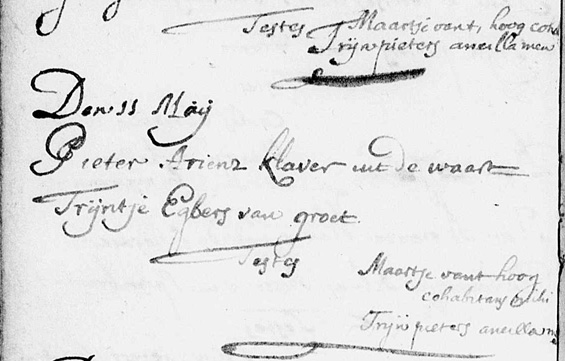 Testes Maartje vant hoog
Trijn pieters ancilla mea
Den 11 Maij
Pieter Arienz klaver uit de waart
Trijntje Egbers van groet.
Testes
Maartje vant hoog
cohabitans mihi
Trijn pieters ancilla